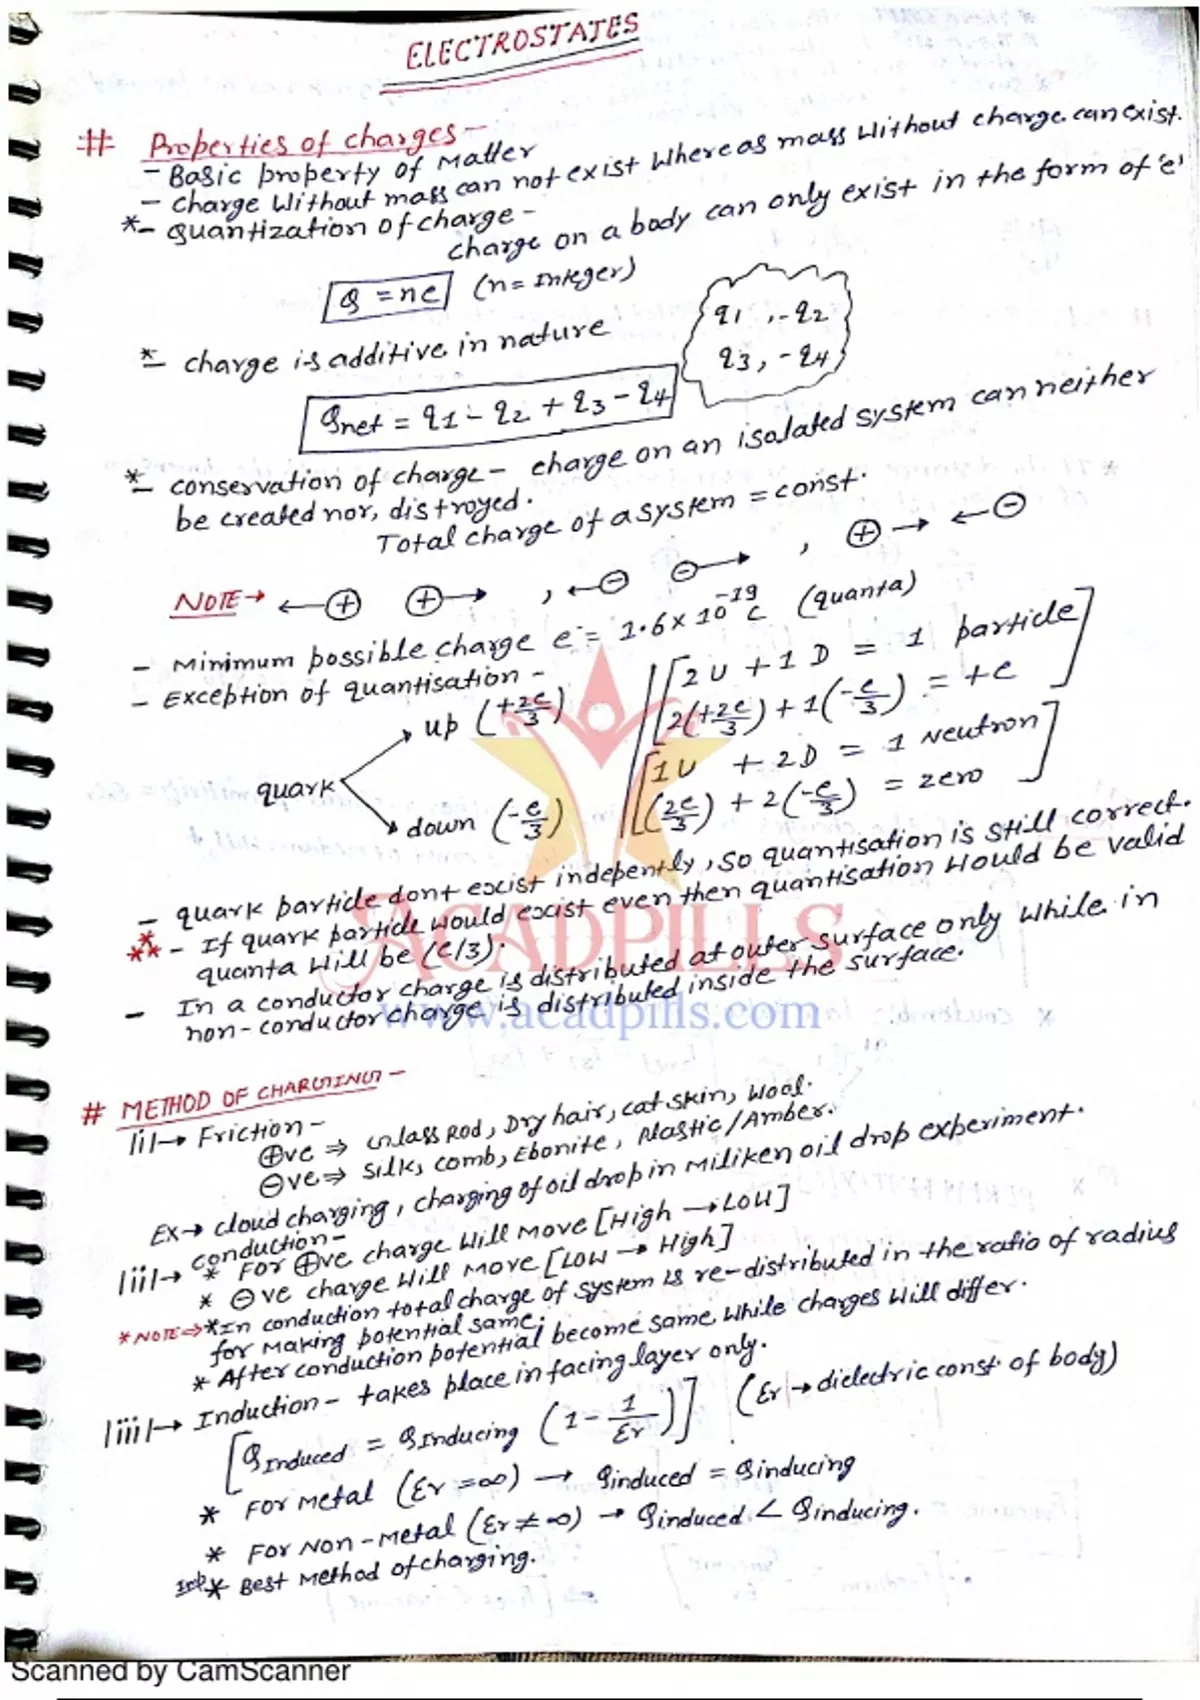 ELECTROSTATES
# Properties of charges-
- Basic property of Matter
- charge without mass can not exist whereas mass without charge can exist.
*- Quantization of charge -
charge on a body can only exist in the form of 'e'
Q = ne (n = Integer)
*- charge is additive in nature
q1, -q2
q3, -q4
Qnet = q1 - q2 + q3 - q4
*- conservation of charge - charge on an isolated system can neither
be created nor, distroyed.
Total charge of a system = const.
NOTE → ← ⊕ ⊕ → , ← ⊖ ⊖ → , ⊕ → ← ⊖
- Minimum possible charge e⁻ = 1.6 × 10⁻¹⁹ C (quanta)
- Exception of quantisation -
quark
up (+2e/3)
down (-e/3)
[2U + 1D = 1 particle
2(+2e/3) + 1(-e/3) = +e]
[1U + 2D = 1 Neutron
(2e/3) + 2(-e/3) = zero]
- quark particle dont exist indepently, so quantisation is still correct.
*** - If quark particle would exist even then quantisation would be valid
quanta will be (e/3).
- In a conductor charge is distributed at outer surface only while in
non-conductor charge is distributed inside the surface.
ACADPILLS
www.acadpills.com
# METHOD OF CHARGING -
|i|→ Friction -
⊕ve ⇒ Glass Rod, Dry hair, cat skin, wool.
⊖ve ⇒ silk, comb, Ebonite, Plastic/Amber.
Ex → cloud charging, charging of oil drop in Miliken oil drop experiment.
|ii|→ conduction -
* For ⊕ve charge will move [High → LOW]
* ⊖ve charge will move [LOW → High]
*NOTE ⇒ *In conduction total charge of system is re-distributed in the ratio of radius
for making potential same.
* After conduction potential become same while charges will differ.
|iii|→ Induction - takes place in facing layer only.
[QInduced = QInducing (1 - 1/εr)] (εr → dielectric const. of body)
* For metal (εr = ∞) → Qinduced = Qinducing
* For Non-metal (εr ≠ ∞) → Qinduced < Qinducing.
Imp * Best Method of charging.
Scanned by CamScanner